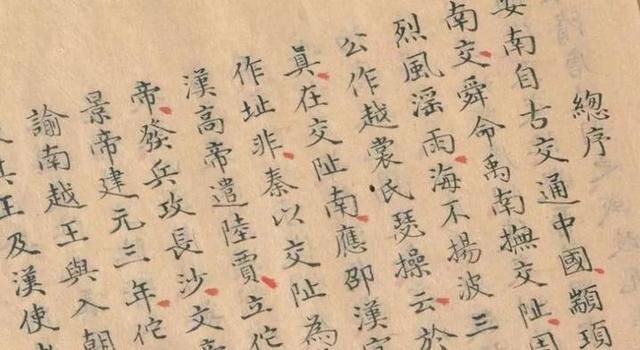 總序
安南自古交通中國顓頊
南交舜命禹南撫交趾周
烈風滛雨海不揚波三
公作越裳氏琴操云於
真在交趾南應邵漢官
作址非秦以交趾為
漢高帝遣陸賈立佗
帝發兵攻長沙文帝
景帝建元三年佗
諭南越王與入朝
其王及漢使者